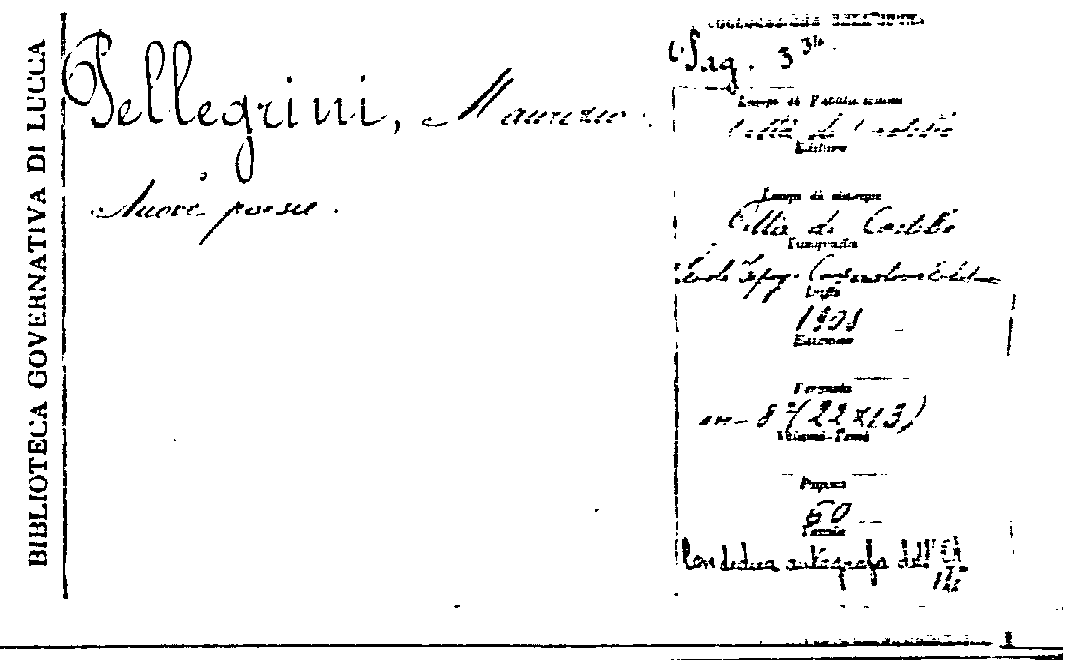 BIBLIOTECA GOVERNATIVA DI LUCCA
Pellegrini, Maurizio.
Nuove poesie.
COLLOCAZIONE DELL'OPERA
Pag. 3
Luogo di Pubblicazione
Città di Castello
Editore
Luogo di stampa
Città di Castello
Tipografia
Scuola Tipog.
Data
1908
Edizione
Formato
in-8° (22x13)
Volumi-Tomi
Pagine
60
Tavole
Con dedica autografa dell'